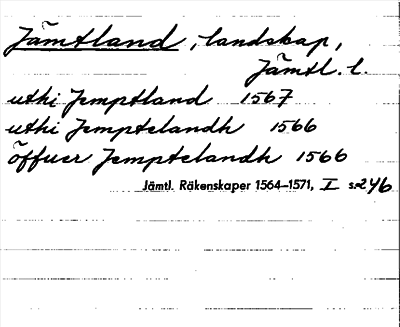 Jämtland, landskap,
Jämtl. l.
uthi Jemptland 1567
uthi Jemptelandh 1566
öffuer Jemptelandh 1566
Jämtl. Räkenskaper 1564–1571, I s. 246